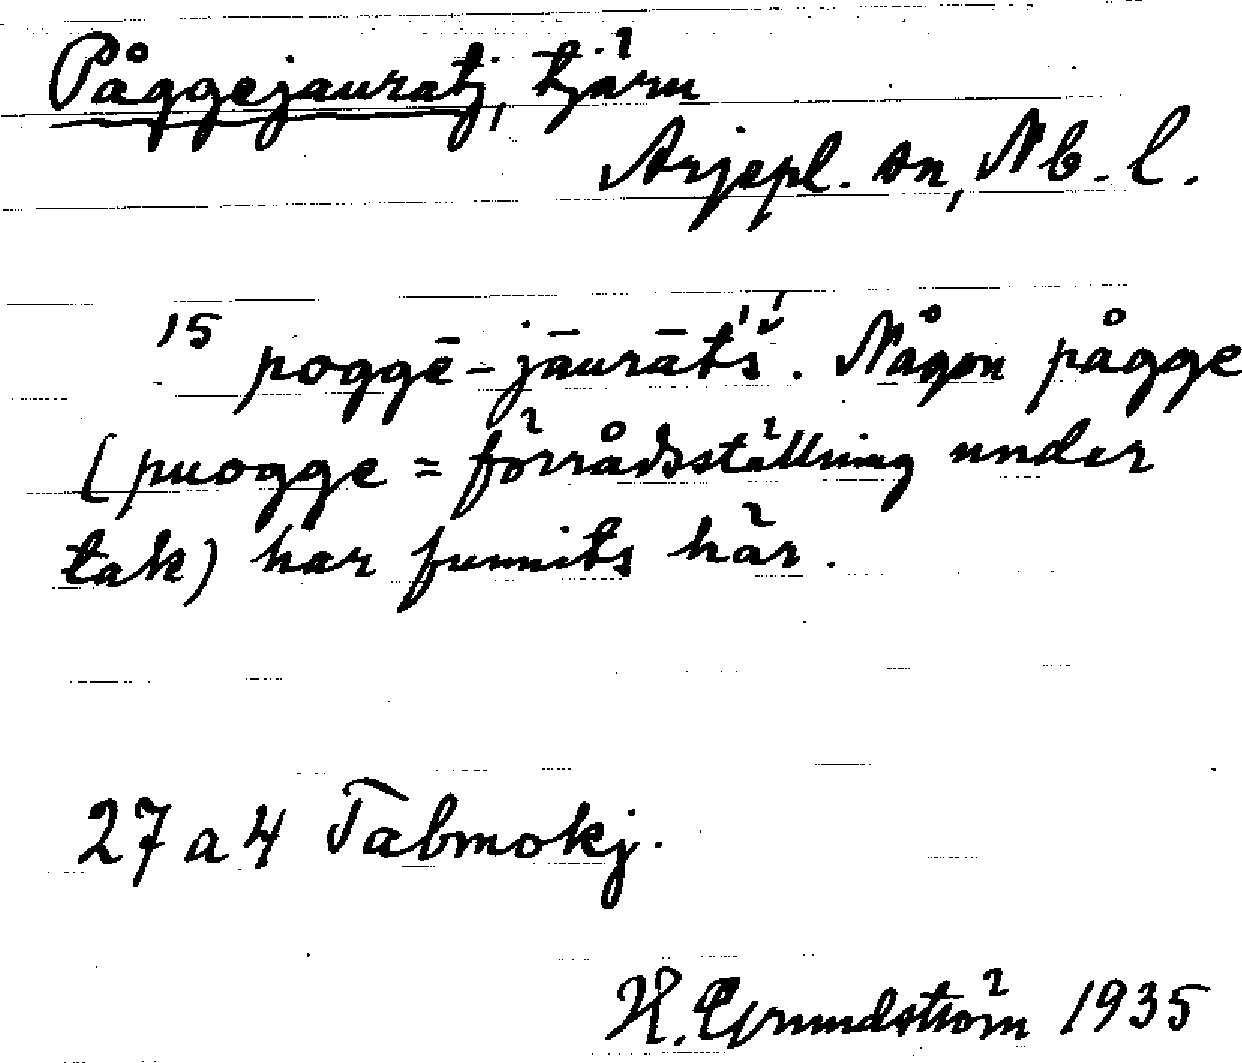 Påggejauratj, tjärn
Arjepl. sn, Nb. l.
15 poggē-jāurātš́. Någon pågge
(puogge = förrådsställning under
tak) har funnits här.
27 a 4 Tabmokj.
H. Grundström 1935